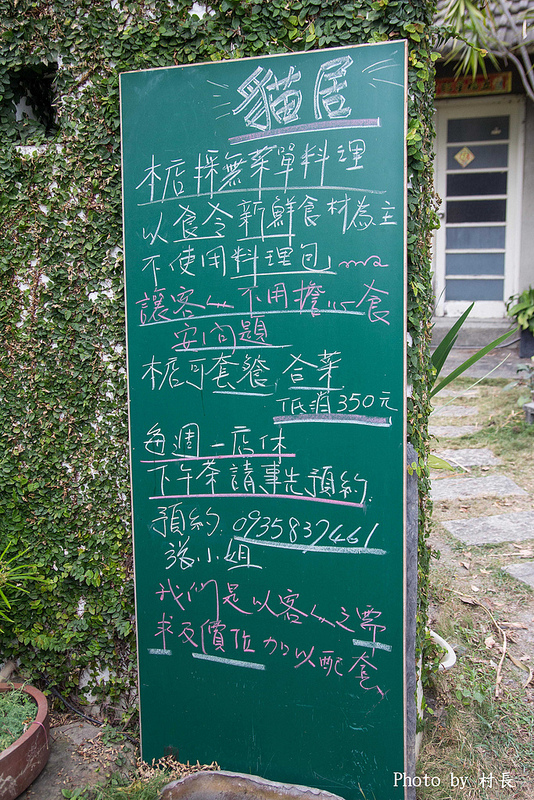 貓居
本店採無菜單料理
以食令新鮮食材為主
不使用料理包
讓客人不用擔心食
安問題
本店可套餐,合菜
低消350元
每週一店休
下午茶請事先預約.
預約:0935837461
張小姐
我們是以客人之需
求及價位加以配套
Photo by 村長